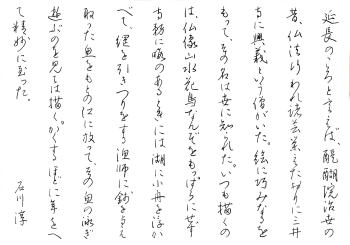 延長のころとき えば、醍醐院治世の
昔、仏法行われ諸芸栄えたみぎりに三井
寺に興義という僧がいた。絵に巧みなるを
もって、その名は世に知られた。いつも描くの
は、仏像山水花鳥なんぞをもっぱらにせず
寺務に暇のあるときには湖に小舟を浮か
べて、網を引きつりをする漁師に銭を与え
取った魚をもとの江に放って、その魚の泳ぎ
遊ぶのを見ては描く。かくするほどに年をへ
て精妙に至った。
石川淳